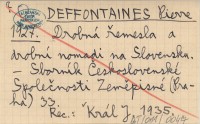 DEFFONTAINES Pierre
1927. Drobná řemesla a
drobní nomadi na Slovensku.
Sborník Československé
Společnosti Zeměpisné (Pra-
ha) 33.
Réc.: Král J. 1935